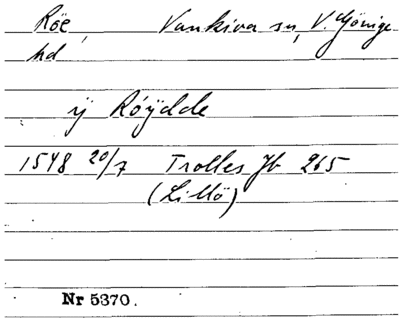 Röe, Vankiva sn, V. Göinge
hd
ÿ Röÿdde
1548 20/7 Trolles Jb 265
(Lillö)
Nr 5370.